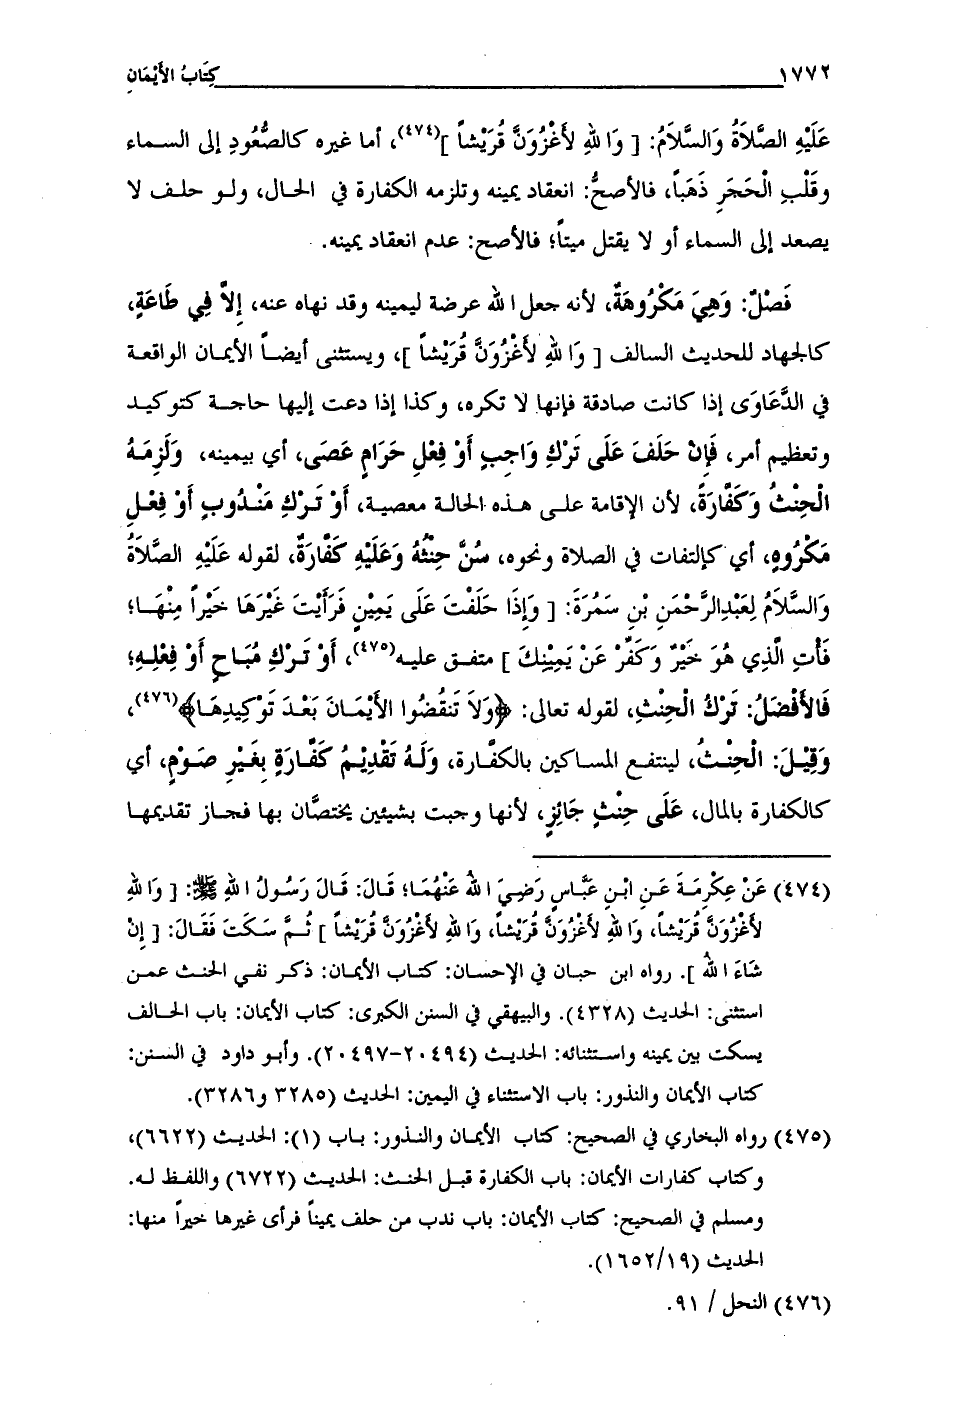 ١٧٧٢ كِتَابُ الأَيْمَانِ
عَلَيْهِ الصَّلاَةُ وَالسَّلاَمُ: [ وَاللهِ لأَغْزُوَنَّ قُرَيْشاً ](٤٧٤)، أما غيره كالصُّعُودِ إلى السماء
وقَلْبِ الْحَجَرِ ذَهَباً، فالأصحُّ: انعقاد يمينه وتلزمه الكفارة في الحال، ولو حلف لا
يصعد إلى السماء أو لا يقتل ميتاً؛ فالأصح: عدم انعقاد يمينه.
فَصْلٌ: وَهِيَ مَكْرُوهَةٌ، لأنه جعل الله عرضة ليمينه وقد نهاه عنه، إِلاَّ فِي طَاعَةٍ،
كالجهاد للحديث السالف [ وَاللهِ لأَغْزُوَنَّ قُرَيْشاً ]، ويستثنى أيضاً الأيمان الواقعة
في الدَّعَاوَى إذا كانت صادقة فإنها لا تكره، وكذا إذا دعت إليها حاجة كتوكيد
وتعظيم أمر، فَإِنْ حَلَفَ عَلَى تَرْكِ وَاجِبٍ أَوْ فِعْلِ حَرَامٍ عَصَى، أي بيمينه، وَلَزِمَهُ
الْحِنْثُ وَكَفَّارَةٌ، لأن الإقامة على هذه الحالة معصية، أَوْ تَرْكِ مَنْدُوبٍ أَوْ فِعْلِ
مَكْرُوهٍ، أي كإلتفات في الصلاة ونحوه، سُنَّ حِنْثُهُ وَعَلَيْهِ كَفَّارَةٌ، لقوله عَلَيْهِ الصَّلاَةُ
وَالسَّلاَمُ لِعَبْدِالرَّحْمَنِ بْنِ سَمُرَةَ: [ وَإِذَا حَلَفْتَ عَلَى يَمِيْنٍ فَرَأَيْتَ غَيْرَهَا خَيْراً مِنْهَا؛
فَأْتِ الَّذِي هُوَ خَيْرٌ وَكَفِّرْ عَنْ يَمِيْنِكَ ] متفق عليه(٤٧٥)، أَوْ تَرْكِ مُبَاحٍ أَوْ فِعْلِهِ؛
فَالأَفْضَلُ: تَرْكُ الْحِنْثِ، لقوله تعالى: ﴿وَلاَ تَنْقُضُوا الأَيْمَانَ بَعْدَ تَوْكِيدِهَا﴾(٤٧٦)،
وَقِيْلَ: الْحِنْثُ، لينتفع المساكين بالكفَّارة، وَلَهُ تَقْدِيْمُ كَفَّارَةٍ بِغَيْرِ صَوْمٍ، أي
كالكفارة بالمال، عَلَى حِنْثٍ جَائِزٍ، لأنها وجبت بشيئين يختصَّان بها فجاز تقديمها
(٤٧٤) عَنْ عِكْرِمَةَ عَنِ ابْنِ عَبَّاسٍ رَضِيَ اللهُ عَنْهُمَا؛ قَالَ: قَالَ رَسُولُ اللهِ ﷺ: [ وَاللهِ
لأَغْزُوَنَّ قُرَيْشاً، وَاللهِ لأَغْزُوَنَّ قُرَيْشاً، وَاللهِ لأَغْزُوَنَّ قُرَيْشاً ] ثُمَّ سَكَتَ فَقَالَ: [ إِنْ
شَاءَ اللهُ ]. رواه ابن حبان في الإحسان: كتاب الأيمان: ذكر نفي الحنث عمن
استثنى: الحديث (٤٣٢٨). والبيهقي في السنن الكبرى: كتاب الأيمان: باب الحالف
يسكت بين يمينه واستثنائه: الحديث (٢٠٤٩٤-٢٠٤٩٧). وأبو داود في السنن:
كتاب الأيمان والنذور: باب الاستثناء في اليمين: الحديث (٣٢٨٥ و٣٢٨٦).
(٤٧٥) رواه البخاري في الصحيح: كتاب الأيمان والنذور: باب (١): الحديث (٦٦٢٢)،
وكتاب كفارات الأيمان: باب الكفارة قبل الحنث: الحديث (٦٧٢٢) واللفظ له.
ومسلم في الصحيح: كتاب الأيمان: باب ندب من حلف يميناً فرأى غيرها خيراً منها:
الحديث (١٦٥٢/١٩).
(٤٧٦) النحل / ٩١.